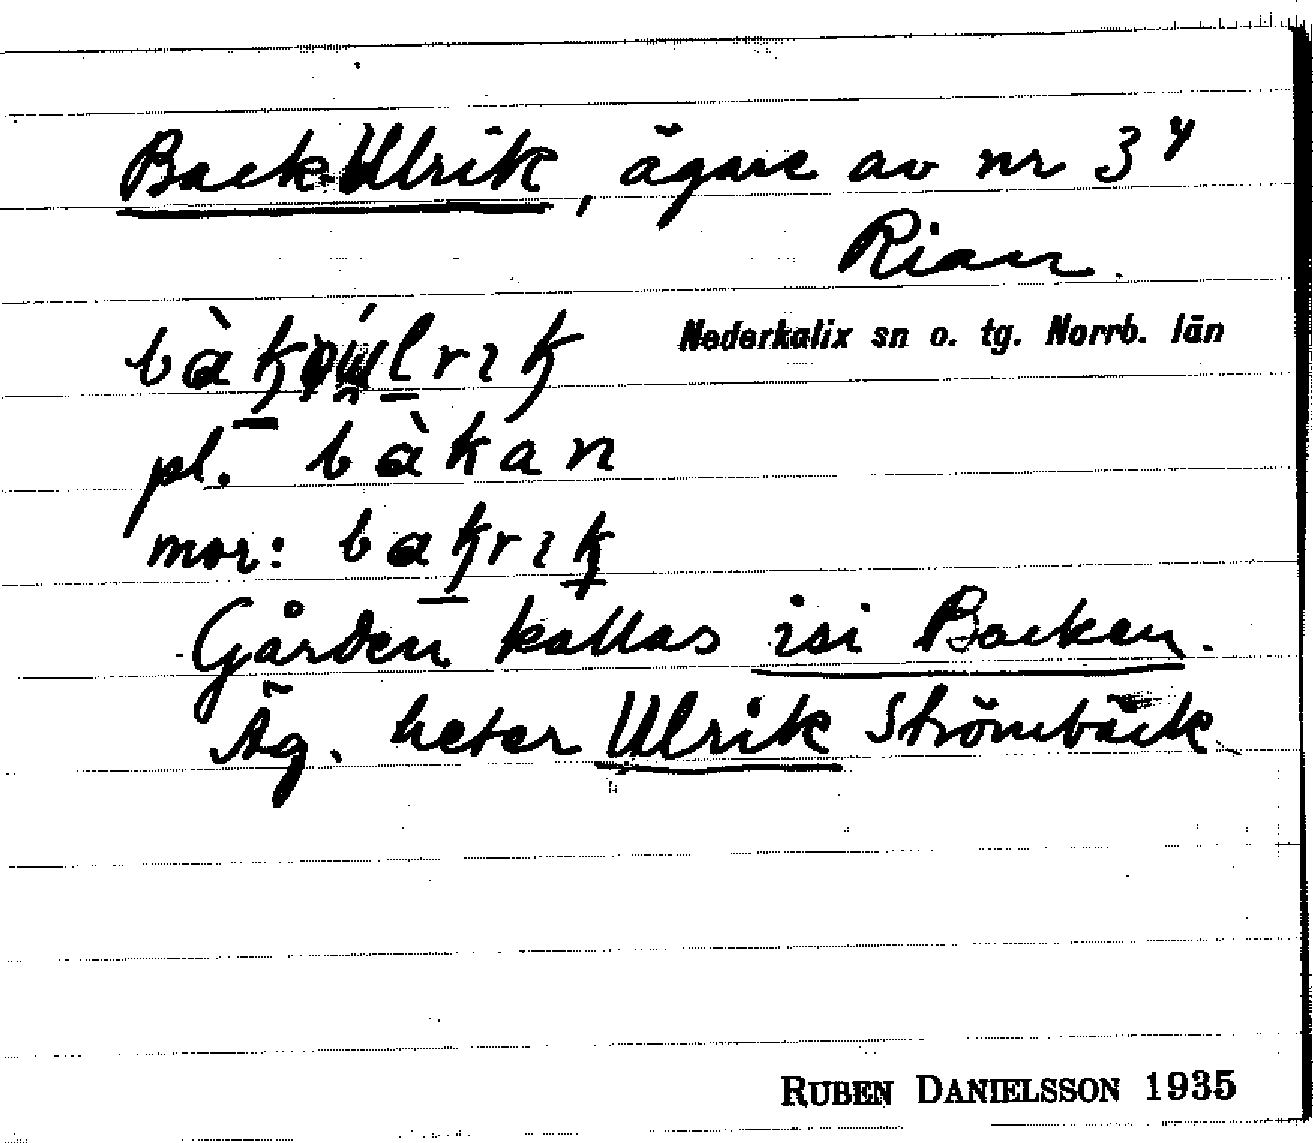 Back-Ulrik, ägare av nr 3⁴
Rian.
Nederkalix sn o. tg. Norrb. län
pl. bàkan
mor: bakrık
Gården kallas isi Backen.
Äg. heter Ulrik Strömbäck
RUBEN DANIELSSON 1935